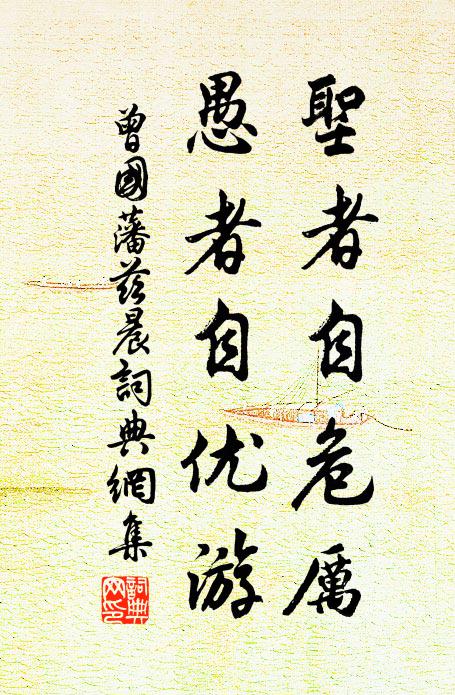 聖者自危厲
愚者自优游
曾國藩茲晨詞典網集
詞典网印